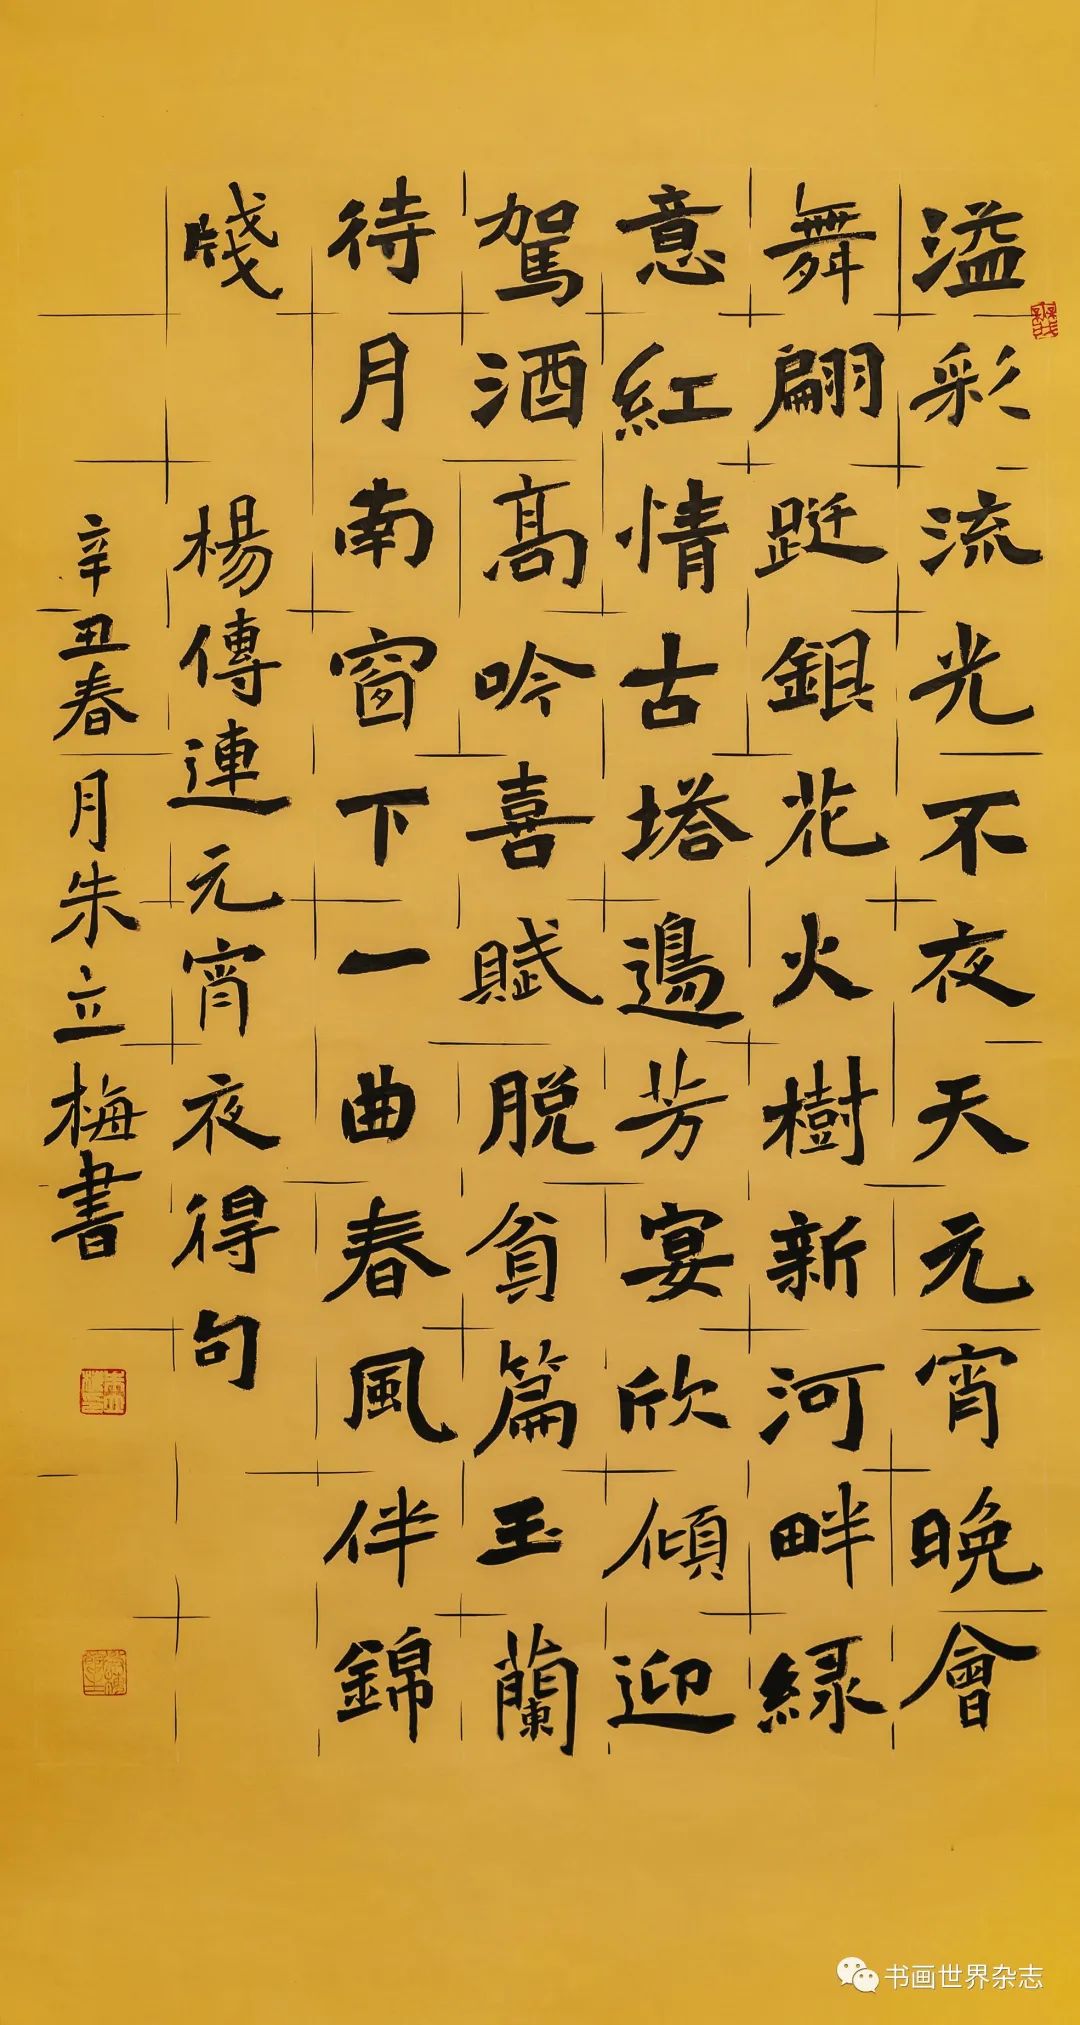 溢彩流光不夜天元宵晚會
舞翩跹銀花火樹新河畔綠
意紅情古塔邊芳宴欣傾迎
駕酒高吟喜賦脱貧篇玉蘭
待月南窗下一曲春風伴錦
牋
楊傳連元宵夜得句
辛丑春月朱立梅書
书画世界杂志